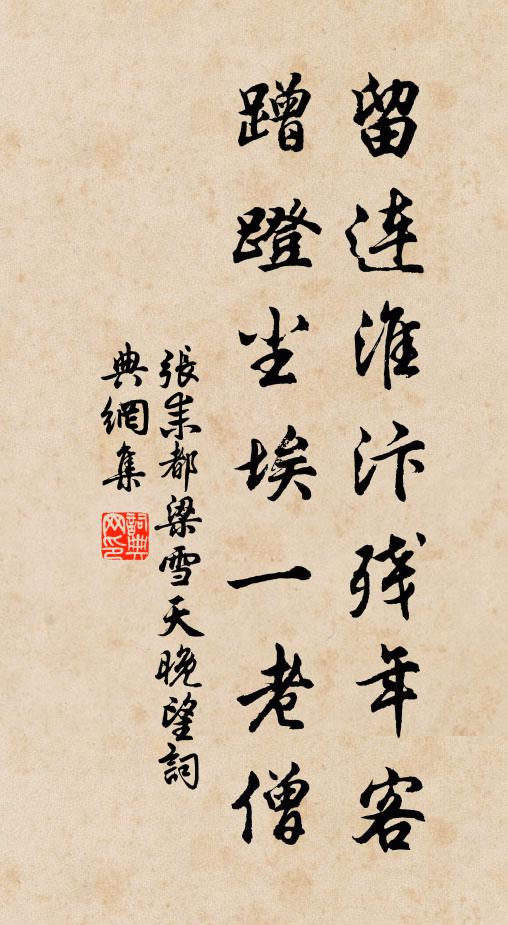 留连淮汴残年客
蹭蹬尘埃一老僧
張耒都梁雪天晚望詞
典網集
詞典
网印